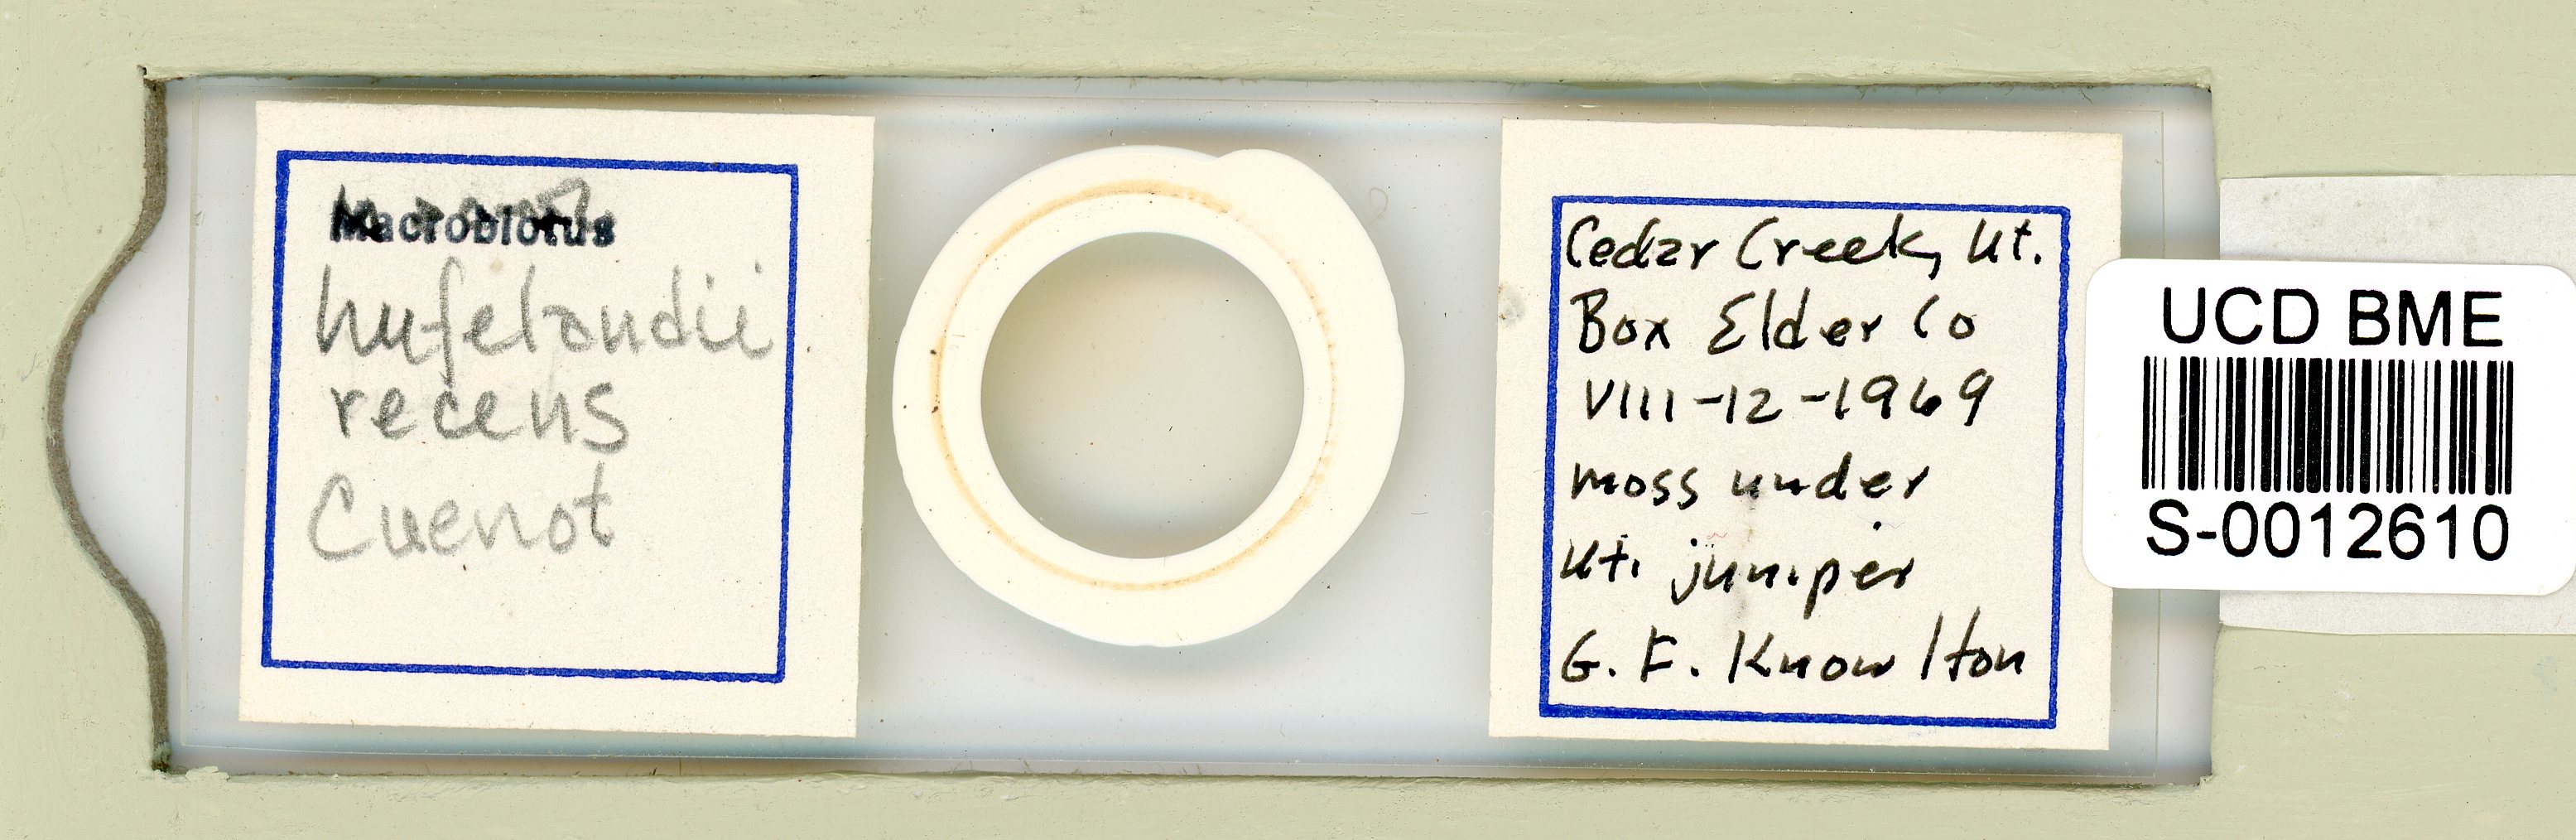 Macrobiotus
hufelandii
recens
Cuenot
Cedar Creek, Ut.
Box Elder Co
VIII-12-1969
moss under
Ut. juniper
G. F. Knowlton
UCD BME
S-0012610